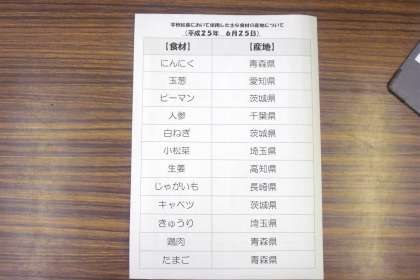 学校給食において使用した主な食材の産地について
（平成２５年　６月２５日）
【食材】　【産地】
にんにく　青森県
玉葱　愛知県
ピーマン　茨城県
人参　千葉県
白ねぎ　茨城県
小松菜　埼玉県
生姜　高知県
じゃがいも　長崎県
キャベツ　茨城県
きゅうり　埼玉県
鶏肉　青森県
たまご　青森県